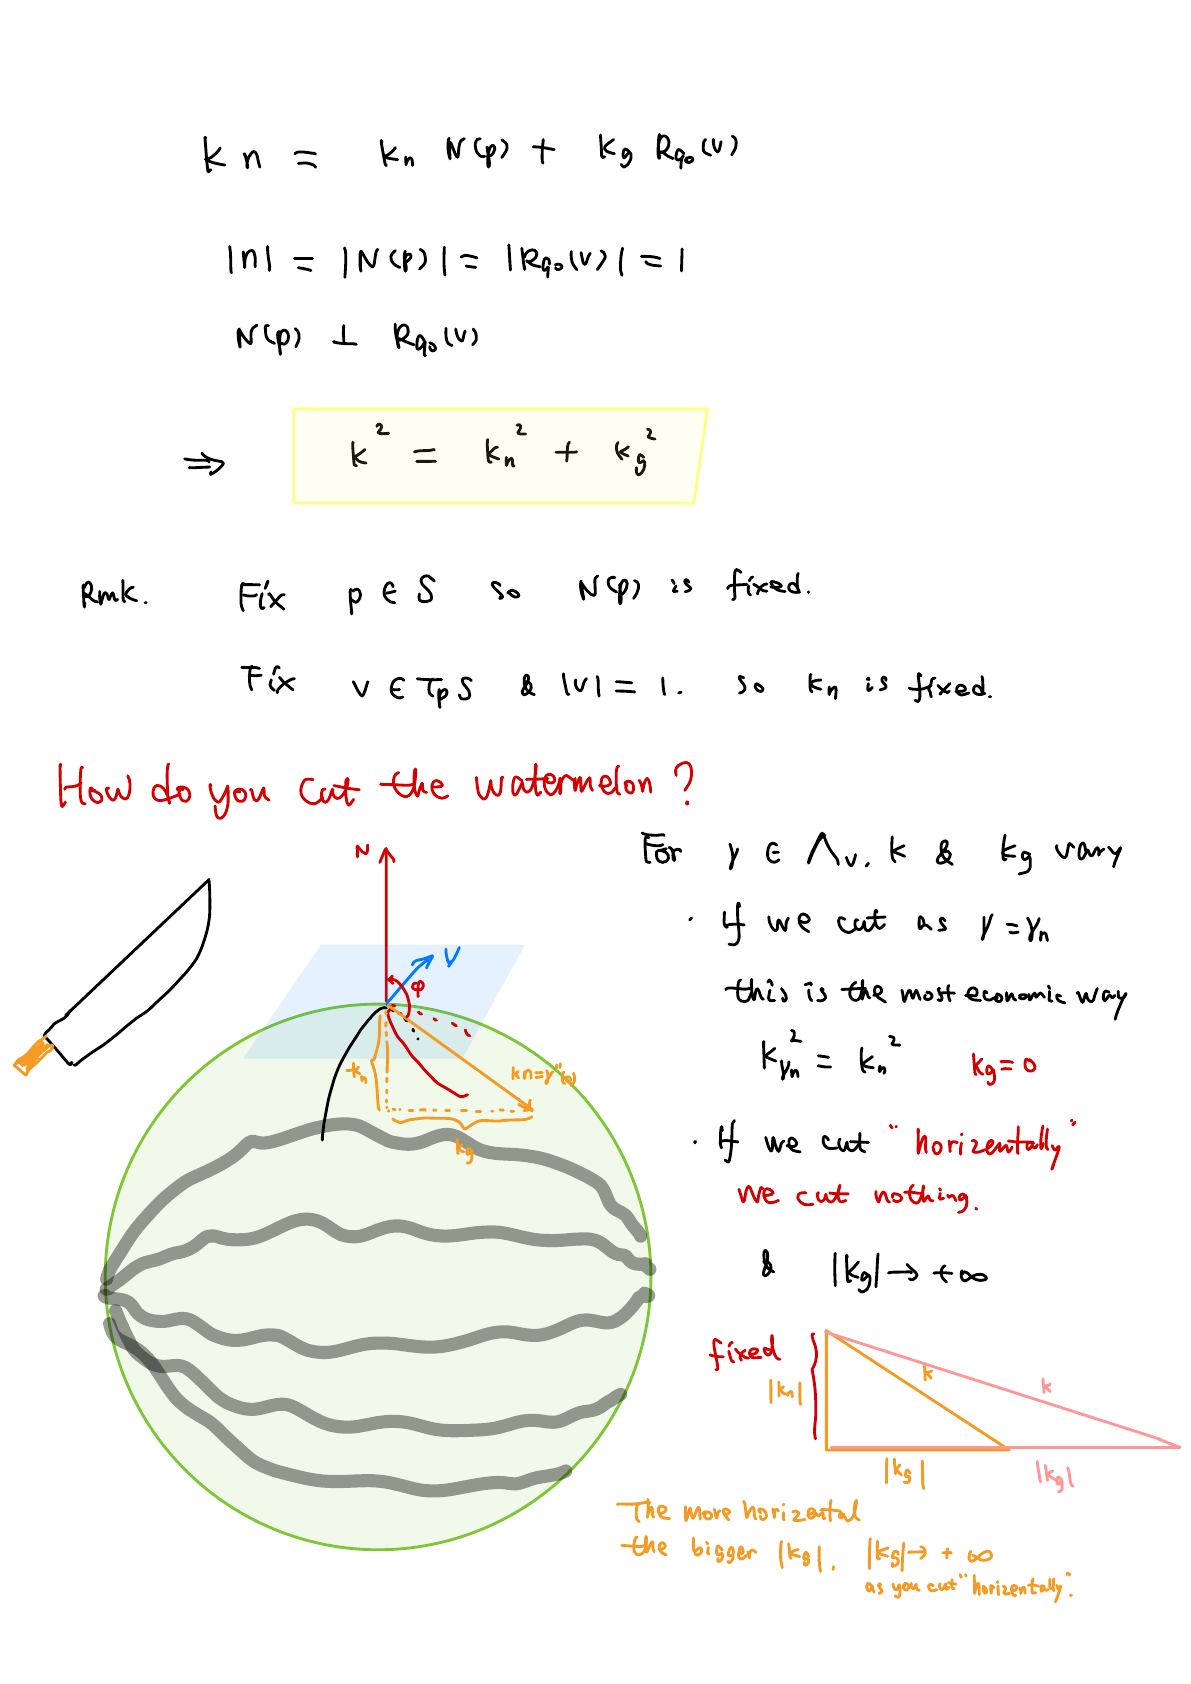 k n = kₙ N(p) + k_g R₉₀(v)
|n| = |N(p)| = |R₉₀(v)| = 1
N(p) ⊥ R₉₀(v)
⇒ k² = kₙ² + k_g²
Rmk. Fix p ∈ S so N(p) is fixed.
Fix v ∈ TₚS & |v| = 1. so kₙ is fixed.
How do you cut the watermelon?
For γ ∈ Λᵥ, k & k_g vary
· If we cut as γ = γₙ
this is the most economic way
k_γₙ² = kₙ² k_g = 0
· If we cut "horizentally"
we cut nothing.
& |k_g| → +∞
N
V
φ
-kₙ
kn = γ"(0)
k_g
fixed
|kₙ|
k
k
|k_g|
|k_g|
The more horizontal
the bigger |k_g|. |k_g| → +∞
as you cut "horizentally".